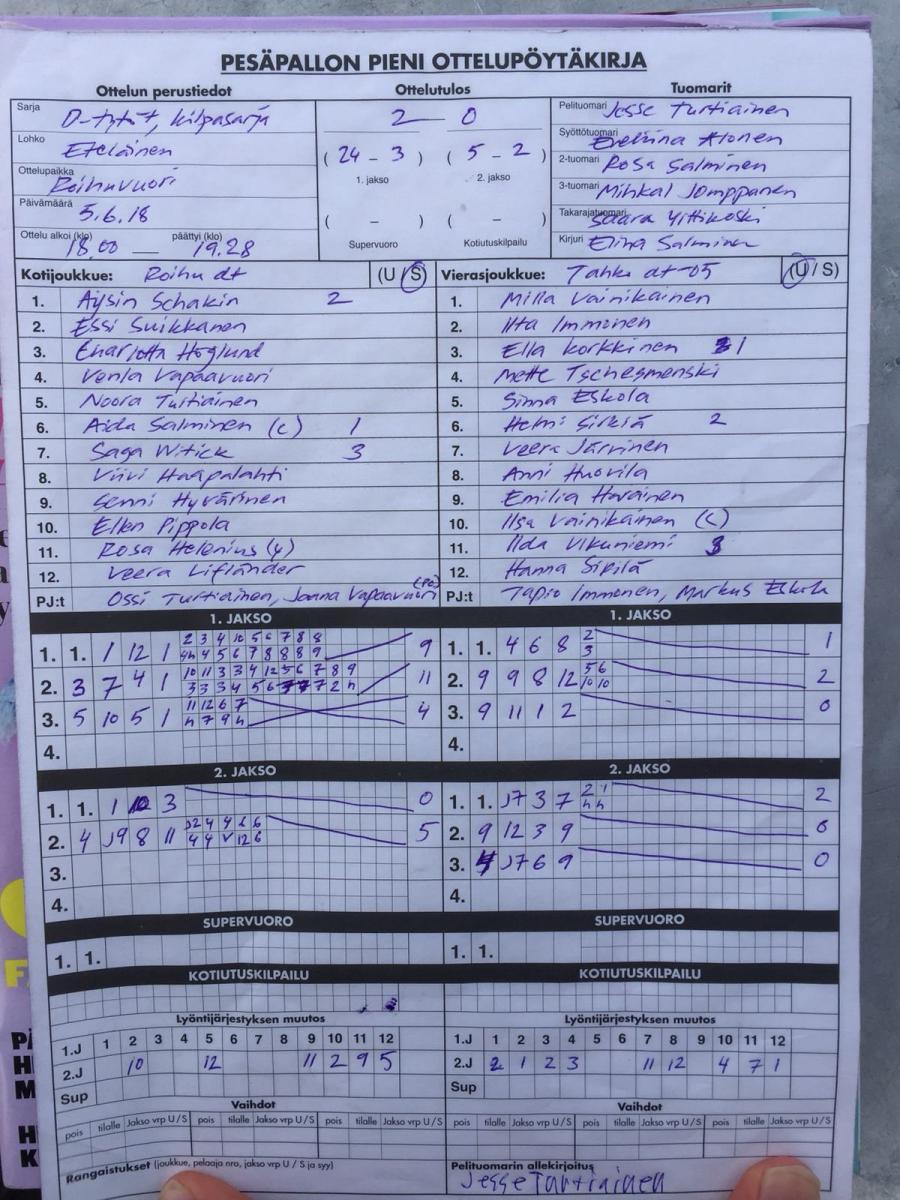 PESÄPALLON PIENI OTTELUPÖYTÄKIRJA
Ottelun perustiedot Ottelutulos Tuomarit
Sarja D-tytöt, kilpasarja 2 — 0 Pelituomari Jesse Turtiainen
Lohko Eteläinen (24 - 3) (5 - 2) Syöttötuomari
1. jakso 2. jakso
Ottelupaikka Roihuvuori 2-tuomari Rosa Salminen
Päivämäärä 5.6.18 ( - ) ( - ) 3-tuomari Jomppanen
Takarajatuomari
Ottelu alkoi (klo) 18.00 — päättyi (klo) 19.28 Supervuoro Kotiutuskilpailu Kirjuri Elina Salminen
Kotijoukkue: Roihu dt (U / S) Vierasjoukkue: Tahko dt-05 (U / S)
1. Aysin Schakin 2 1. Milla Vainikainen
2. Essi Suikkanen 2. Iita Immonen
3. Charlotta Höglund 3. Ella Korkkinen 1
4. Venla Vapaavuori 4. Mette Tschesmenski
5. Noora Turtiainen 5. Sinna Eskola
6. Aida Salminen (c) 1 6. Helmi Sirkiä 2
7. Saga Witick 3 7. Veera Järvinen
8. Viivi Haapalahti 8. Anni Huovila
9. Senni Hyvärinen 9. Emilia
10. Ellen Pippola 10. Ilsa Vainikainen (c)
11. Rosa Helenius 11. Ilda Vikuniemi 3
12. Veera Lifländer 12. Hanna
PJ:t Ossi Turtiainen, Joana Vapaavuori (PJ:t Tapio Immonen, Markus Eskola
1. JAKSO 1. JAKSO
2 3 4 10 5 6 7 8 8
1. 1. 1 12 1 9 1. 1. 4 6 8 2 3 1
4h 4 5 6 7 8 8 8 9
10 11 3 3 4 12 5 6 7 8 9 5 6
2. 3 7 4 1 11 2. 9 9 8 12 10 10 2
11 12 6 7
3. 5 10 5 1 h 7 9 h 4 3. 9 11 1 2 0
4. 4.
2. JAKSO 2. JAKSO
1. 1. 1 3 0 1. 1. J7 3 7 2 1 h h 2
2. 4 J9 8 11 5 2. 9 12 3 9 0
3. 3. J7 6 9 0
4. 4.
SUPERVUORO SUPERVUORO
1. 1. 1. 1.
KOTIUTUSKILPAILU KOTIUTUSKILPAILU
Lyöntijärjestyksen muutos Lyöntijärjestyksen muutos
1.J 1 2 3 4 5 6 7 8 9 10 11 12 1.J 1 2 3 4 5 6 7 8 9 10 11 12
2.J 10 12 11 2 9 5 2.J 2 1 2 3 11 12 4 7 1
Sup Sup
Vaihdot Vaihdot
pois tilalle Jakso vrp U / S pois tilalle Jakso vrp U / S pois tilalle Jakso vrp U / S pois tilalle Jakso vrp U / S pois tilalle Jakso vrp U / S pois tilalle Jakso vrp U / S
Rangaistukset (joukkue, pelaaja nro, jakso vrp U / S ja syy) Pelituomarin allekirjoitus
Jesse Turtiainen